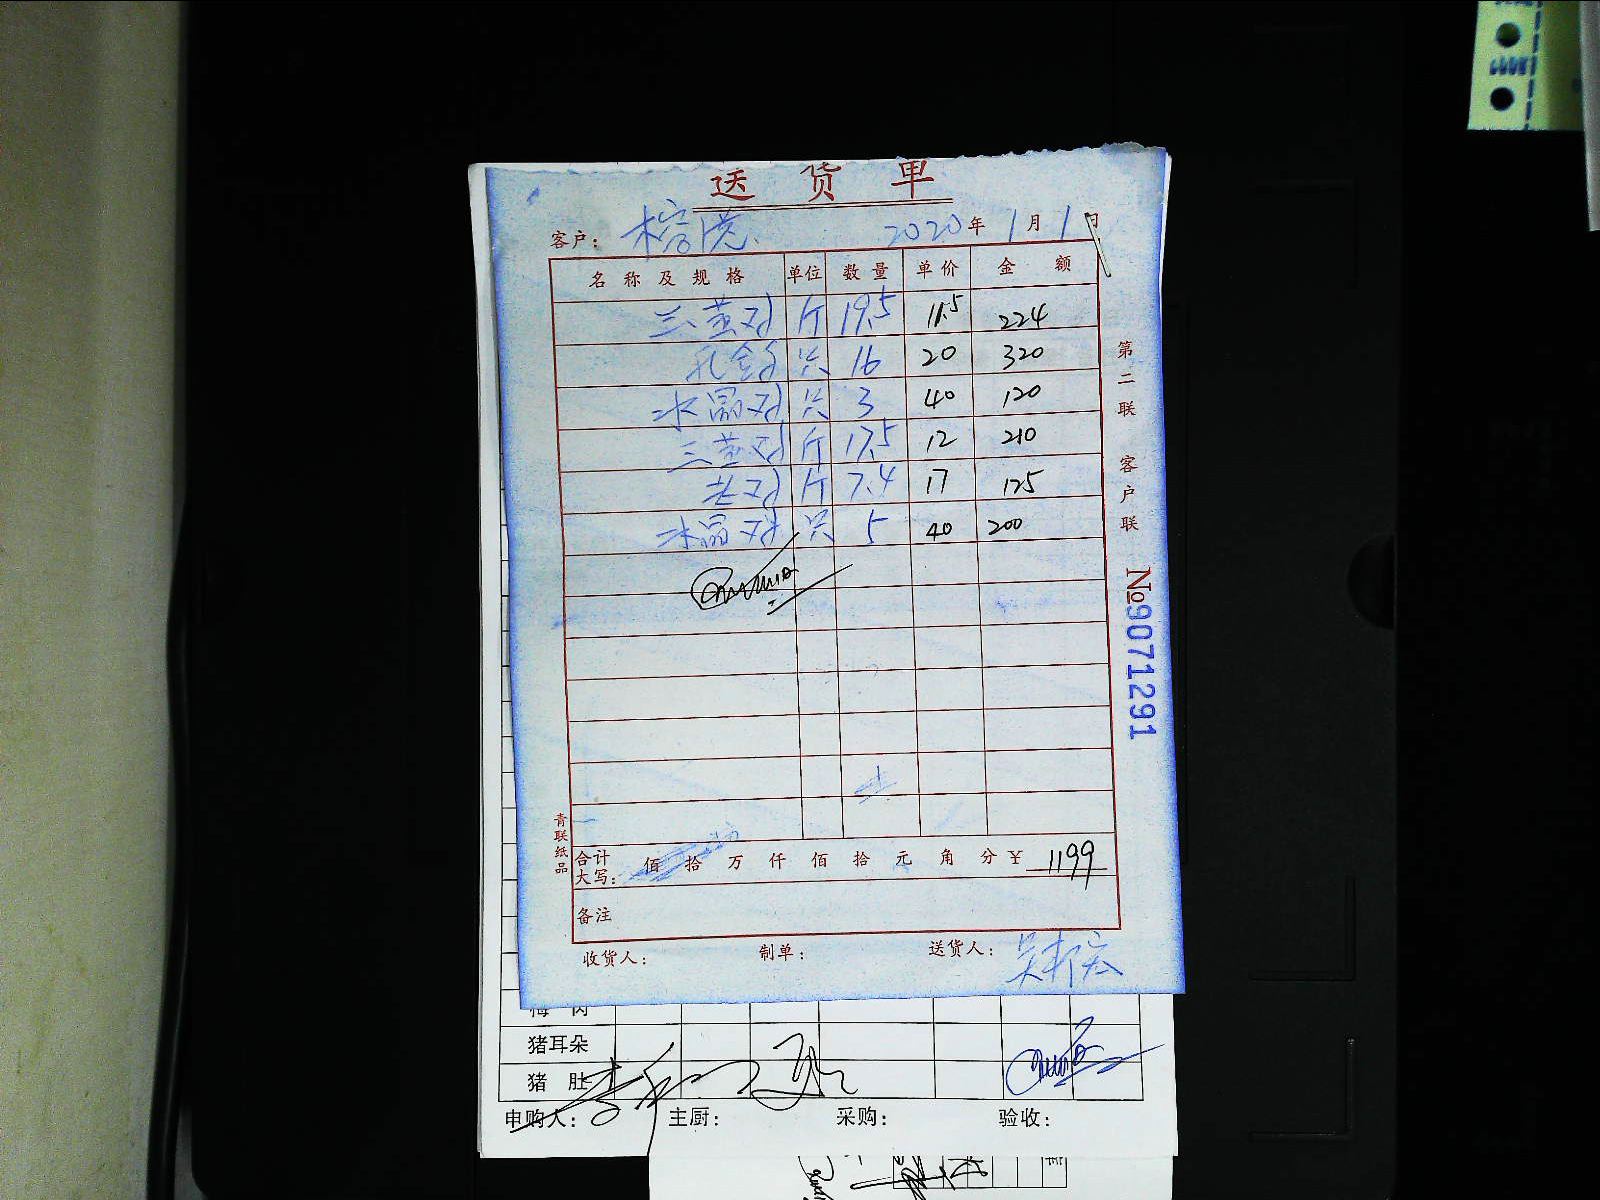 送 货 单
客户： 榕港 2020年 1月 1日
名称及规格 单位 数量 单价 金额
三黄鸡 斤 19.5 11.5 224
乳鸽 只 16 20 320
水晶鸡 只 3 40 120
三黄鸡 斤 17.5 12 210
老鸡 斤 7.4 17 125
水晶鸡 只 5 40 200
第二联 客户联
№9071291
青联纸品
合计大写： 佰 拾 万 仟 佰 拾 元 角 分 ¥ 1199
备注
收货人： 制单： 送货人：
猪耳朵
猪 肚
申购人： 主厨： 采购： 验收：